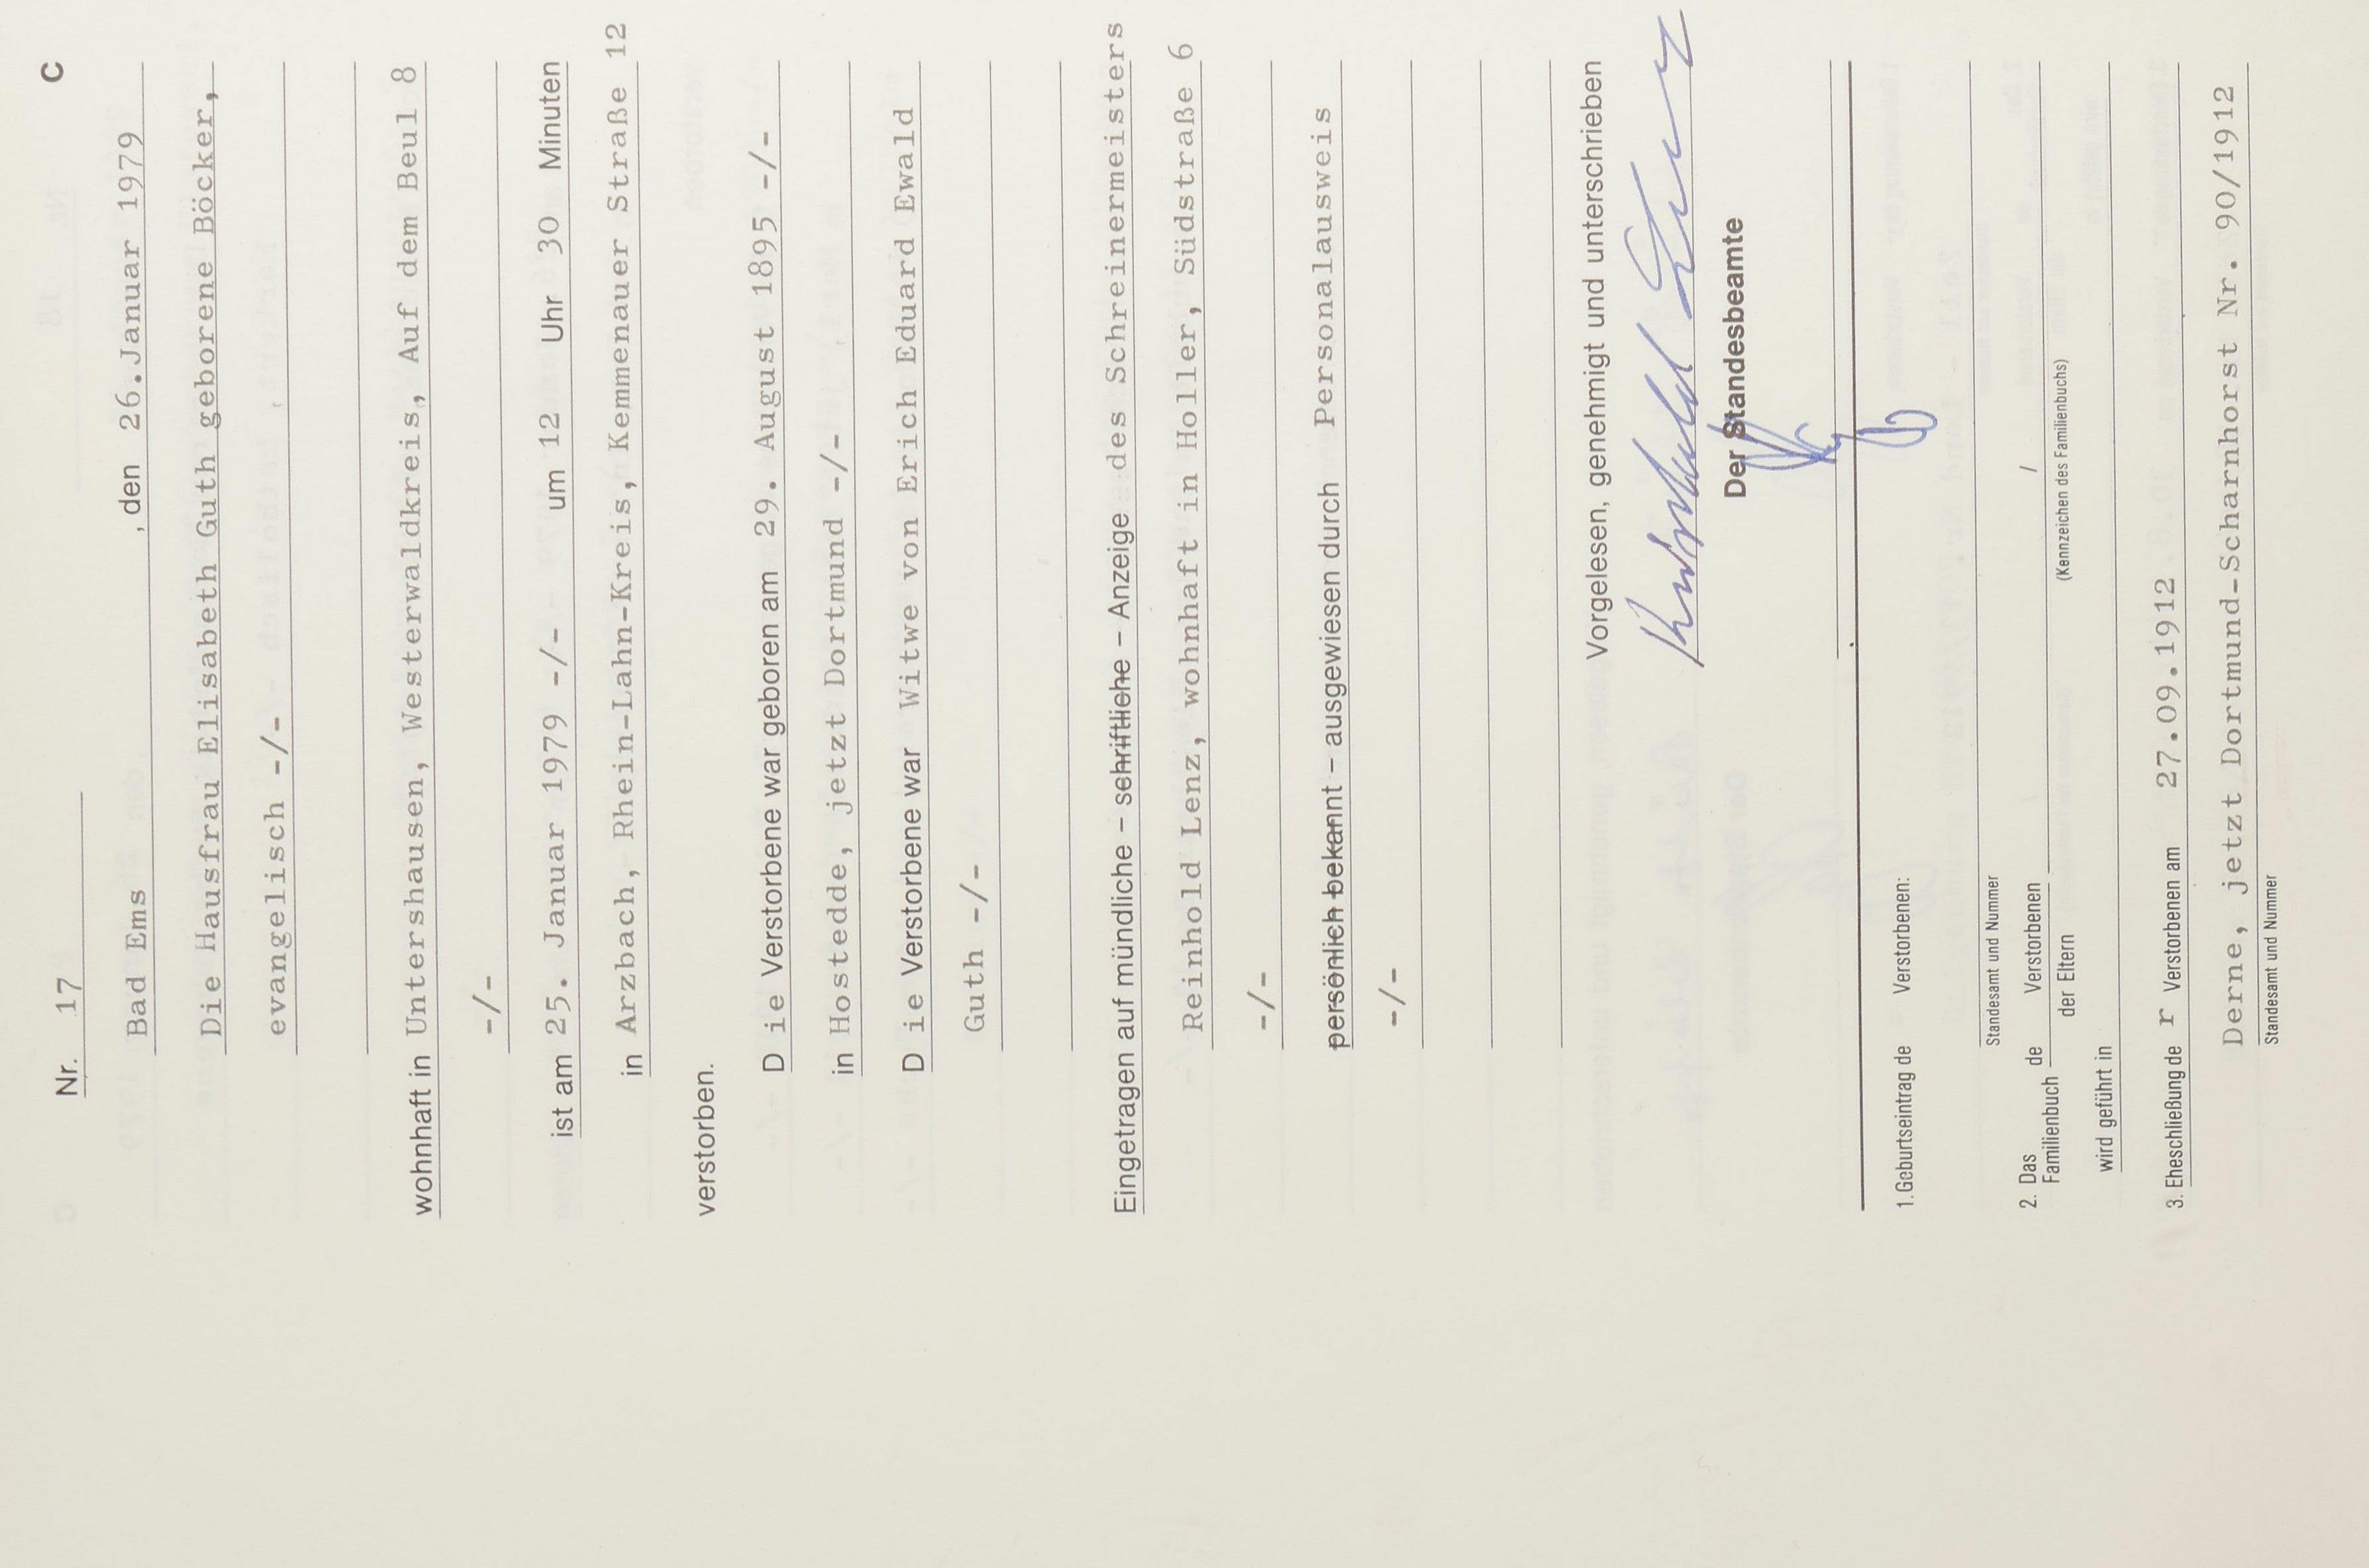 C
Nr. 17
Bad Ems , den 26.Januar 1979
Die Hausfrau Elisabeth Guth geborene Böcker,
evangelisch -/-
wohnhaft in Untershausen, Westerwaldkreis, Auf dem Beul 8
-/-
ist am 25. Januar 1979 -/- um 12 Uhr 30 Minuten
in Arzbach, Rhein-Lahn-Kreis, Kemmenauer Straße 12
verstorben.
D ie Verstorbene war geboren am 29. August 1895 -/-
in Hostedde, jetzt Dortmund -/-
D ie Verstorbene war Witwe von Erich Eduard Ewald
Guth -/-
Eingetragen auf mündliche – schriftliche – Anzeige des Schreinermeisters
Reinhold Lenz, wohnhaft in Holler, Südstraße 6
-/-
persönlich bekannt – ausgewiesen durch Personalausweis
-/-
Vorgelesen, genehmigt und unterschrieben
Reinhold Lenz
Der Standesbeamte
1. Geburtseintrag de Verstorbenen:
Standesamt und Nummer
2. Das Familienbuch de Verstorbenen / der Eltern /
(Kennzeichen des Familienbuchs)
wird geführt in
3. Eheschließung de r Verstorbenen am 27.09.1912
Derne, jetzt Dortmund-Scharnhorst Nr. 90/1912
Standesamt und Nummer